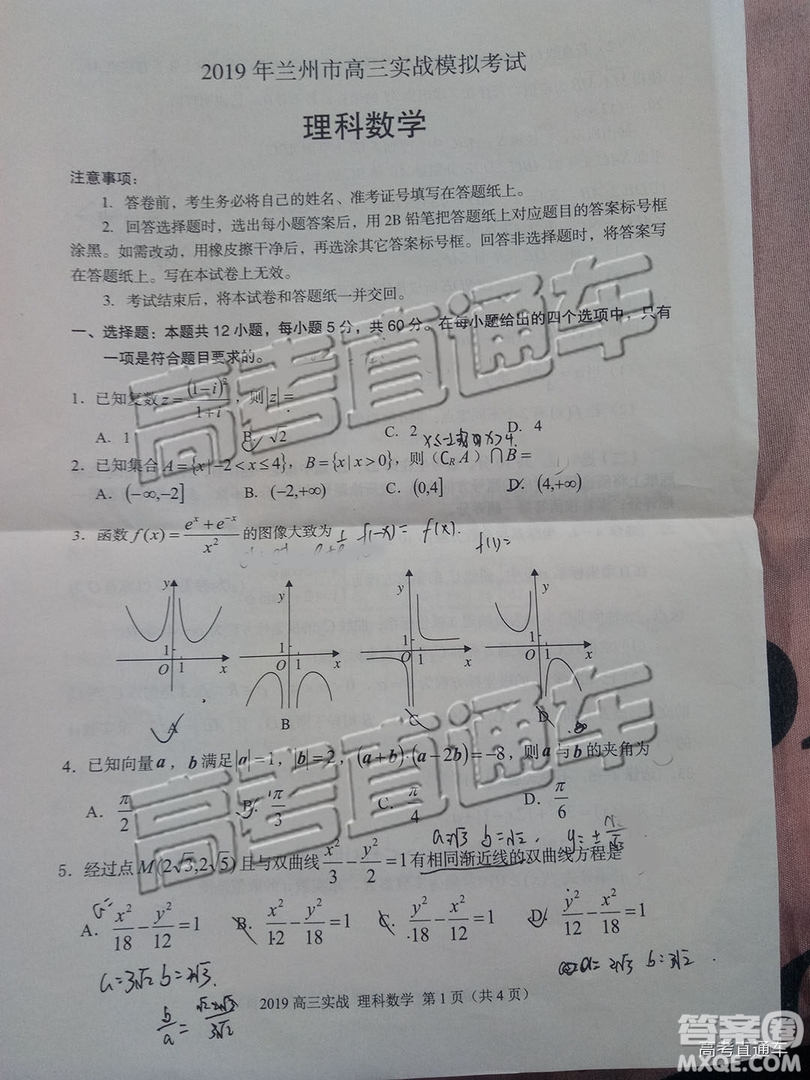 2019 年兰州市高三实战模拟考试
理科数学
注意事项：
1. 答卷前，考生务必将自己的姓名、准考证号填写在答题纸上。
2. 回答选择题时，选出每小题答案后，用 2B 铅笔把答题纸上对应题目的答案标号框
涂黑。如需改动，用橡皮擦干净后，再选涂其它答案标号框。回答非选择题时，将答案写
在答题纸上。写在本试卷上无效。
3. 考试结束后，将本试卷和答题纸一并交回。
一、选择题：本题共 12 小题，每小题 5 分，共 60 分。在每小题给出的四个选项中，只有
一项是符合题目要求的。
1. 已知复数 z = (1-i)²/(1+i)，则|z|=
A. 1 B. √2 C. 2 D. 4
x≤-2或x>4.
2. 已知集合 A={x|-2<x≤4}，B={x|x>0}，则（∁R A）∩B=
A. (-∞,-2] B. (-2,+∞) C. (0,4] D. (4,+∞)
3. 函数 f(x) = (eˣ+e⁻ˣ)/x² 的图像大致为
f(-x)= f(x). f(y)=
y y y y
1 1 1 1
O 1 x O 1 x O 1 x O 1 x
A B C D
4. 已知向量 a，b 满足|a|=1，|b|=2，(a+b)·(a-2b)=-8，则 a 与 b 的夹角为
A. π/2 B. π/3 C. π/4 D. π/6
a=√3 b=√2. y=±√2/√3
5. 经过点 M(2√3,2√5) 且与双曲线 x²/3 - y²/2 = 1 有相同渐近线的双曲线方程是
A. x²/18 - y²/12 = 1 B. x²/12 - y²/18 = 1 C. y²/18 - x²/12 = 1 D. y²/12 - x²/18 = 1
a=3√2 b=2√3. a=2√3 b=3√2.
b/a=
2019 高三实战 理科数学 第 1 页（共 4 页）
高考直通车
高考直通车
答案圈
高考直通车
MXQE.COM